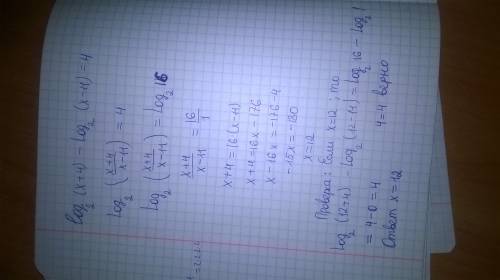 log₂(x+4) - log₂(x-11) = 4
log₂((x+4)/(x-11)) = 4
log₂((x+4)/(x-11)) = log₂ 16
(x+4)/(x-11) = 16/1
x+4 = 16(x-11)
x+4 = 16x - 176
x - 16x = -176 - 4
-15x = -180
x = 12
Проверка: Если x=12, то
log₂(12+4) - log₂(12-11) = log₂ 16 - log₂ 1
= 4 - 0 = 4
4=4 верно
Ответ x=12